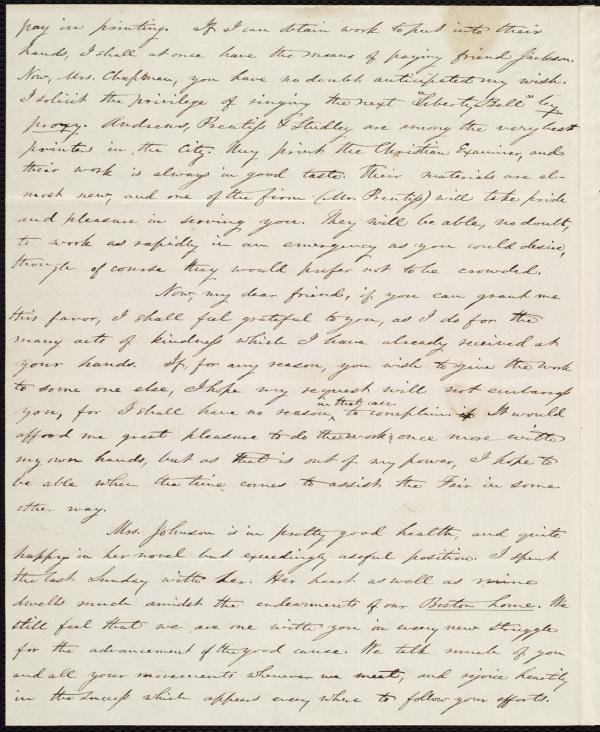 pay in printing. If I can obtain work to put into their
hands, I shall at once have the means of paying friend Jackson.
Now, Mrs. Chapman, you have no doubt anticipated my wish.
I solicit the privilege of ringing the next "Liberty Bell" by
proxy. Andrews, Prentiss & Studley are among the very best
printers in the City. They print the Christian Examiner, and
their work is always in good taste. Their materials are al-
most new, and one of the firm (Mr. Prentiss) will take pride
and pleasure in serving you. They will be able, no doubt,
to work as rapidly in an emergency as you could desire,
though of course they would prefer not to be crowded.
Now, my dear friend, if you can grant me
this favor, I shall feel grateful to you, as I do for the
many acts of kindness which I have already received at
your hands. If, for any reason, you wish to give the work
to some one else, I hope my request will not embarrass
you, for I shall have no reason, in that case to complain. It would
afford me great pleasure to do the work once more with
my own hands, but as that is out of my power, I hope to
be able when the time comes to assist the Fair in some
other way.
Mrs. Johnson is in pretty good health, and quite
happy in her novel but exceedingly useful position. I spent
the last Sunday with her. Her heart as well as mine
dwells much amidst the endearments of our Boston home. We
still feel that we are one with you in every new struggle
for the advancement of the good cause. We talk much of you
and all your movements whenever we meet, and rejoice heartily
in the success which appears every where to follow your efforts.